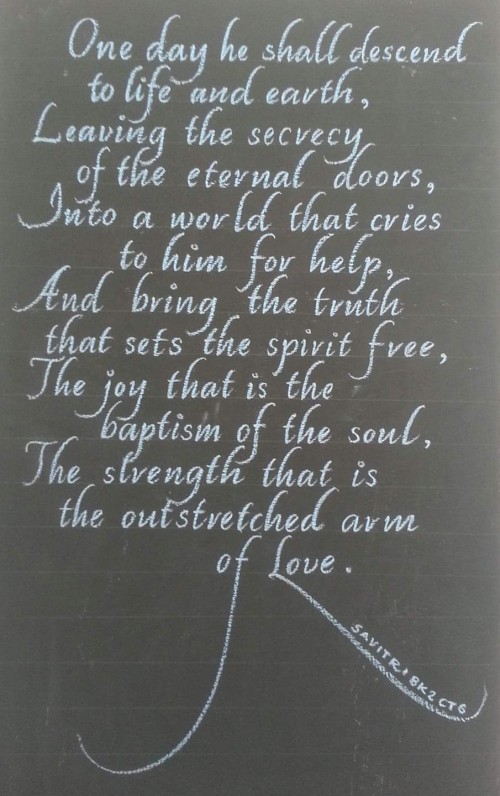 One day he shall descend
to life and earth,
Leaving the secrecy
of the eternal doors,
Into a world that cries
to him for help,
And bring the truth
that sets the spirit free,
The joy that is the
baptism of the soul,
The strength that is
the outstretched arm
of Love.
SAVITRI BK2 CT6